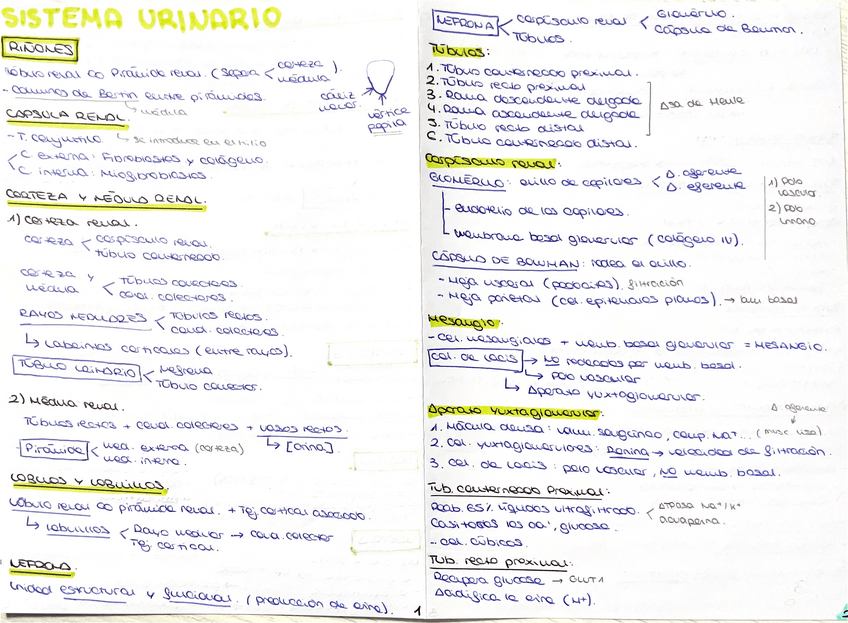 SISTEMA URINARIO
RIÑONES
lóbulo renal ∞ Pirámide renal. (separa < corteza ).
médula
- Columnas de Bertin entre pirámides.
médula
cáliz
menor.
vértice
papila
CÁPSULA RENAL.
- T. conjuntivo ↳ se introduce en el hilio
C externa: Fibroblastos y colágeno.
C interna: Miofibroblastos.
CORTEZA Y MÉDULA RENAL.
1) Corteza renal.
corteza < corpúsculo renal.
túbulo contorneado.
corteza y
médula < Túbulos colectores.
cond. colectores.
RAYOS MEDULARES < Túbulos rectos.
cond. colectores.
↳ Laberintos corticales (entre rayos).
TÚBULO URINARIO < Nefrona
Túbulo colector.
2) Médula renal.
Túbulos rectos + cond. colectores + vasos rectos.
↳ [orina].
Pirámide < med. externa (corteza)
med. interna.
LÓBULOS Y LOBULILLOS.
Lóbulo renal ∞ pirámide renal. + Tej. cortical asociado.
↳ lobulillos < Rayo medular → cond. colector
Tej. cortical.
NEFRONA
Unidad estructural y funcional. (producción de orina).
1
NEFRONA < Corpúsculo renal < Glomérulo.
Cápsula de Bowman.
Túbulos.
Túbulos:
1. Túbulo contorneado proximal.
2. Túbulo recto proximal
3. Rama descendente delgada
4. Rama ascendente delgada
5. Túbulo recto distal
Asa de Henle
6. Túbulo contorneado distal.
Corpúsculo renal:
GLOMÉRULO: ovillo de capilares < A. aferente
A. eferente
1) Polo
vascular.
2) Polo
urinario
- endotelio de los capilares.
- membrana basal glomerular (colágeno IV).
CÁPSULA DE BOWMAN: rodea el ovillo.
- Hoja visceral (podocitos). filtración
- Hoja parietal (cel. epiteliales planos). → lam basal
Mesangio:
- Cel. mesangiales + memb. basal glomerular = MESANGIO.
cel. de lacis → NO rodeados por memb. basal.
↳ Polo vascular
↳ Aparato yuxtaglomerular.
Aparato yuxtaglomerular:
A. aferente
1. Mácula densa: vol. sanguíneo, comp. Na+... (musc. lisa).
2. Cel. yuxtaglomerulares: Renina → velocidad de filtración.
3. Cel. de lacis: polo vascular, NO memb. basal.
Tub. contorneado Proximal:
Reab. 65% líquidos ultrafiltrado. < ATPasa Na+/K+
acuaporina.
Casi todos los aa, glucosa.
- cel. cúbicas.
Tub. recto proximal:
Recupera glucosa → GLUT1
Acidifica la orina (H+).